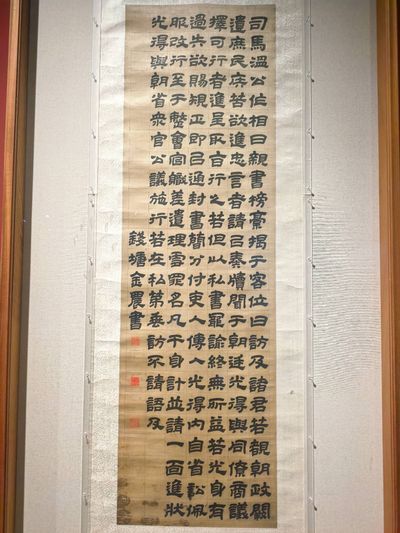 司馬溫公作相日親書榜稾揭于客位曰訪及諸君若覩朝政闕
遺庶民疾苦欲進忠言者請以奏牘聞于朝廷光得與同僚商議
擇可行者進呈取旨行之若但以私書寵諭終無所益若光身有
過失欲賜規正即以通封書簡分付吏人傳入光得內自省訟佩
服改行至于整會官職差遣理雪罪名凡干身計並請一面進狀
光得與朝省衆官公議施行若在私第垂訪不請語及
錢塘金農書